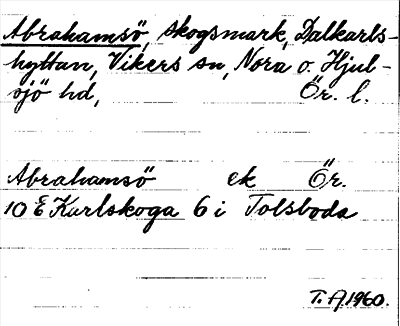 Abrahamsö, skogsmark, Dalkarls-
hyttan, Vikers sn, Nora o. Hjul-
sjö hd, Ör. l.
Abrahamsö ek Ör.
10 E Karlskoga 6 i Tolsboda
T. A. 1960.